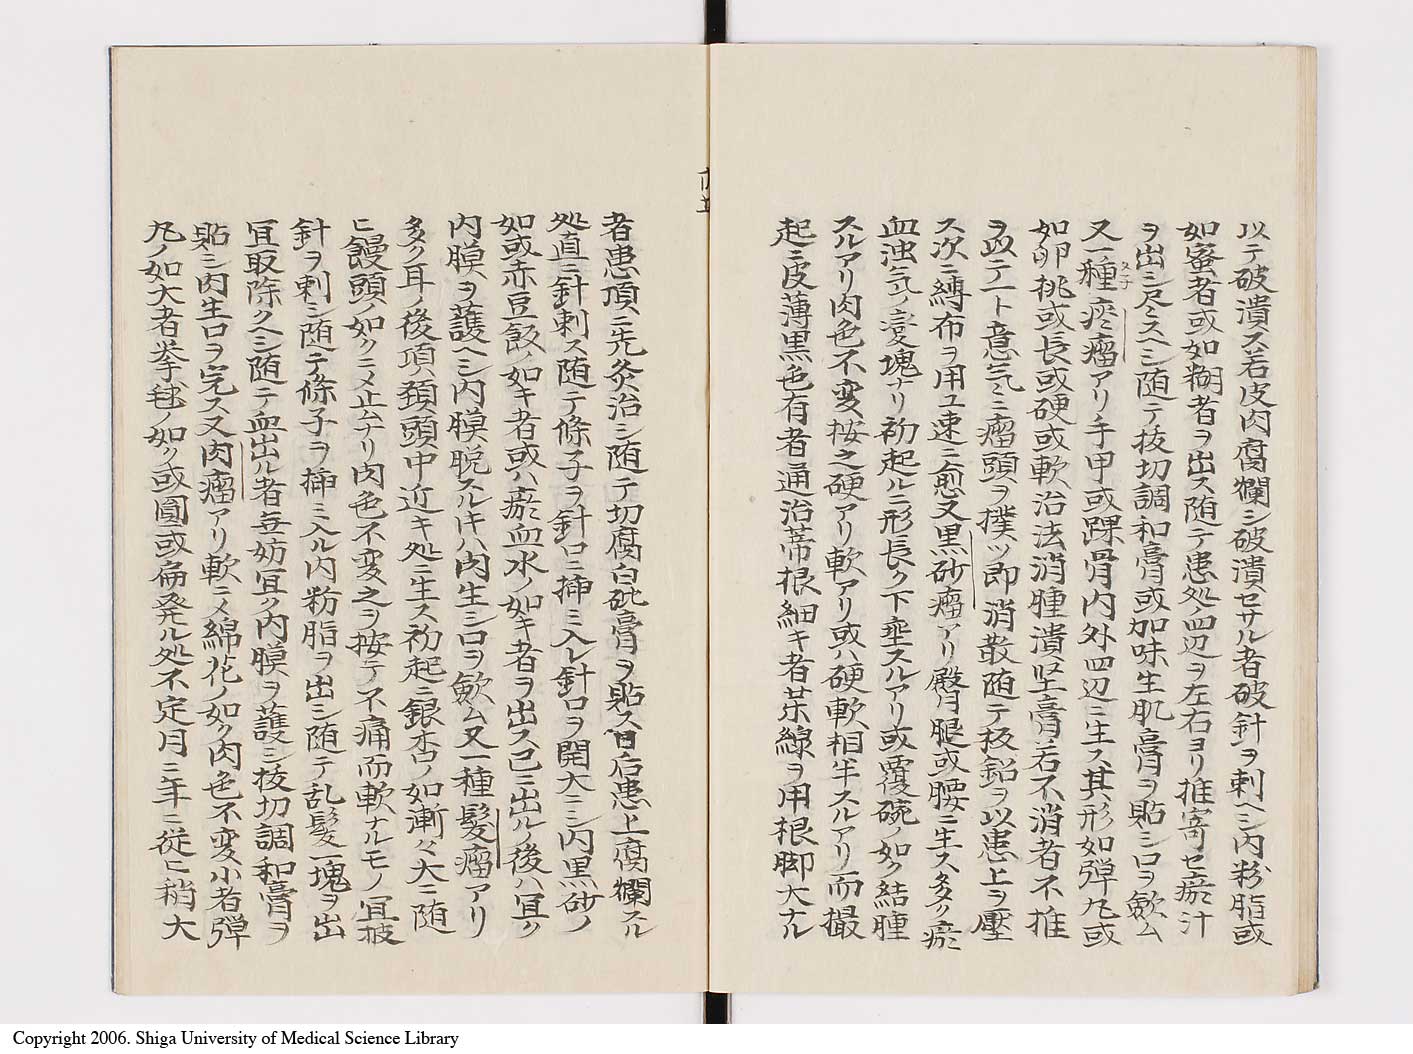 以テ破潰ス若皮肉腐爛シ破潰セサル者破針ヲ刺ヘシ内粉脂或
如蜜者或如糊者ヲ出ス随テ患処四辺ヲ左右ヨリ推寄セ瘀汁
ヲ出シ尽スヘシ随テ抜切調和膏或加味生肌膏ヲ貼シ口ヲ歛ム
又一種痰瘤アリ手甲或踝骨内外四辺ニ生ス其形如弾丸或
如卵桃或長或硬或軟治法消腫潰堅膏若不消者不推
ヲ以テ一ト意気ミ瘤頭ヲ撲ツ即消散随テ扳鉛ヲ以患上ヲ壓
ス次ニ縛布ヲ用ユ速ニ愈又黒砂瘤アリ臀腿或腰ニ生ス多ク瘀
血浊気ノ塊ナリ初起ル二形長ク下垂スルアリ或覆碗ノ如ク結腫
スルアリ肉色不変按之硬アリ軟アリ或ハ硬軟相半スルアリ而撮
起ニ皮薄黒色有者通治蒂根細キ者芫線ヲ用根脚大ナル
者患頂ニ先灸治シ随テ切腐白砒膏ヲ貼ス日后患上腐爛スル
処直ニ針刺ス随テ條子ヲ針口ニ挿ミ入レ針口ヲ開大ニシ内黒砂ノ
如或赤豆飯ノ如キ者或ハ瘀血水ノ如キ者ヲ出ス已ニ出ル後ハ冝ク
内膜ヲ護ヘシ内膜脱スル片ハ肉生シ口ヲ歛ム又一種髪瘤アリ
多ク耳ノ後項頚頭中近キ処ニ生ス初起ニ銀杏ノ如漸々大ニ随
ヒ饅頭ノ如クニメ止ムナリ肉色不変之ヲ按テ不痛而軟ナルモノ冝披
針ヲ刺シ随テ條子ヲ挿ミ入ル内粉脂ヲ出シ随テ乱髪一塊ヲ出
冝取除クヘシ随テ血出ル者無妨冝ク内膜ヲ護シ抜切調和膏ヲ
貼シ肉生口ヲ完ス又肉瘤アリ軟ニメ綿花ノ如ク肉色不変小者弾
丸ノ如大者拳毬ノ如ク或圓或扁発ル処不定月ニ年ニ従ヒ稍大
Copyright 2006. Shiga University of Medical Science Library